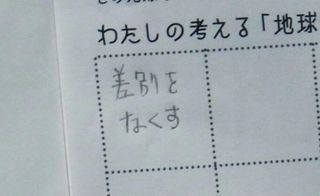 わたしの考える「地球
差別を
なくす